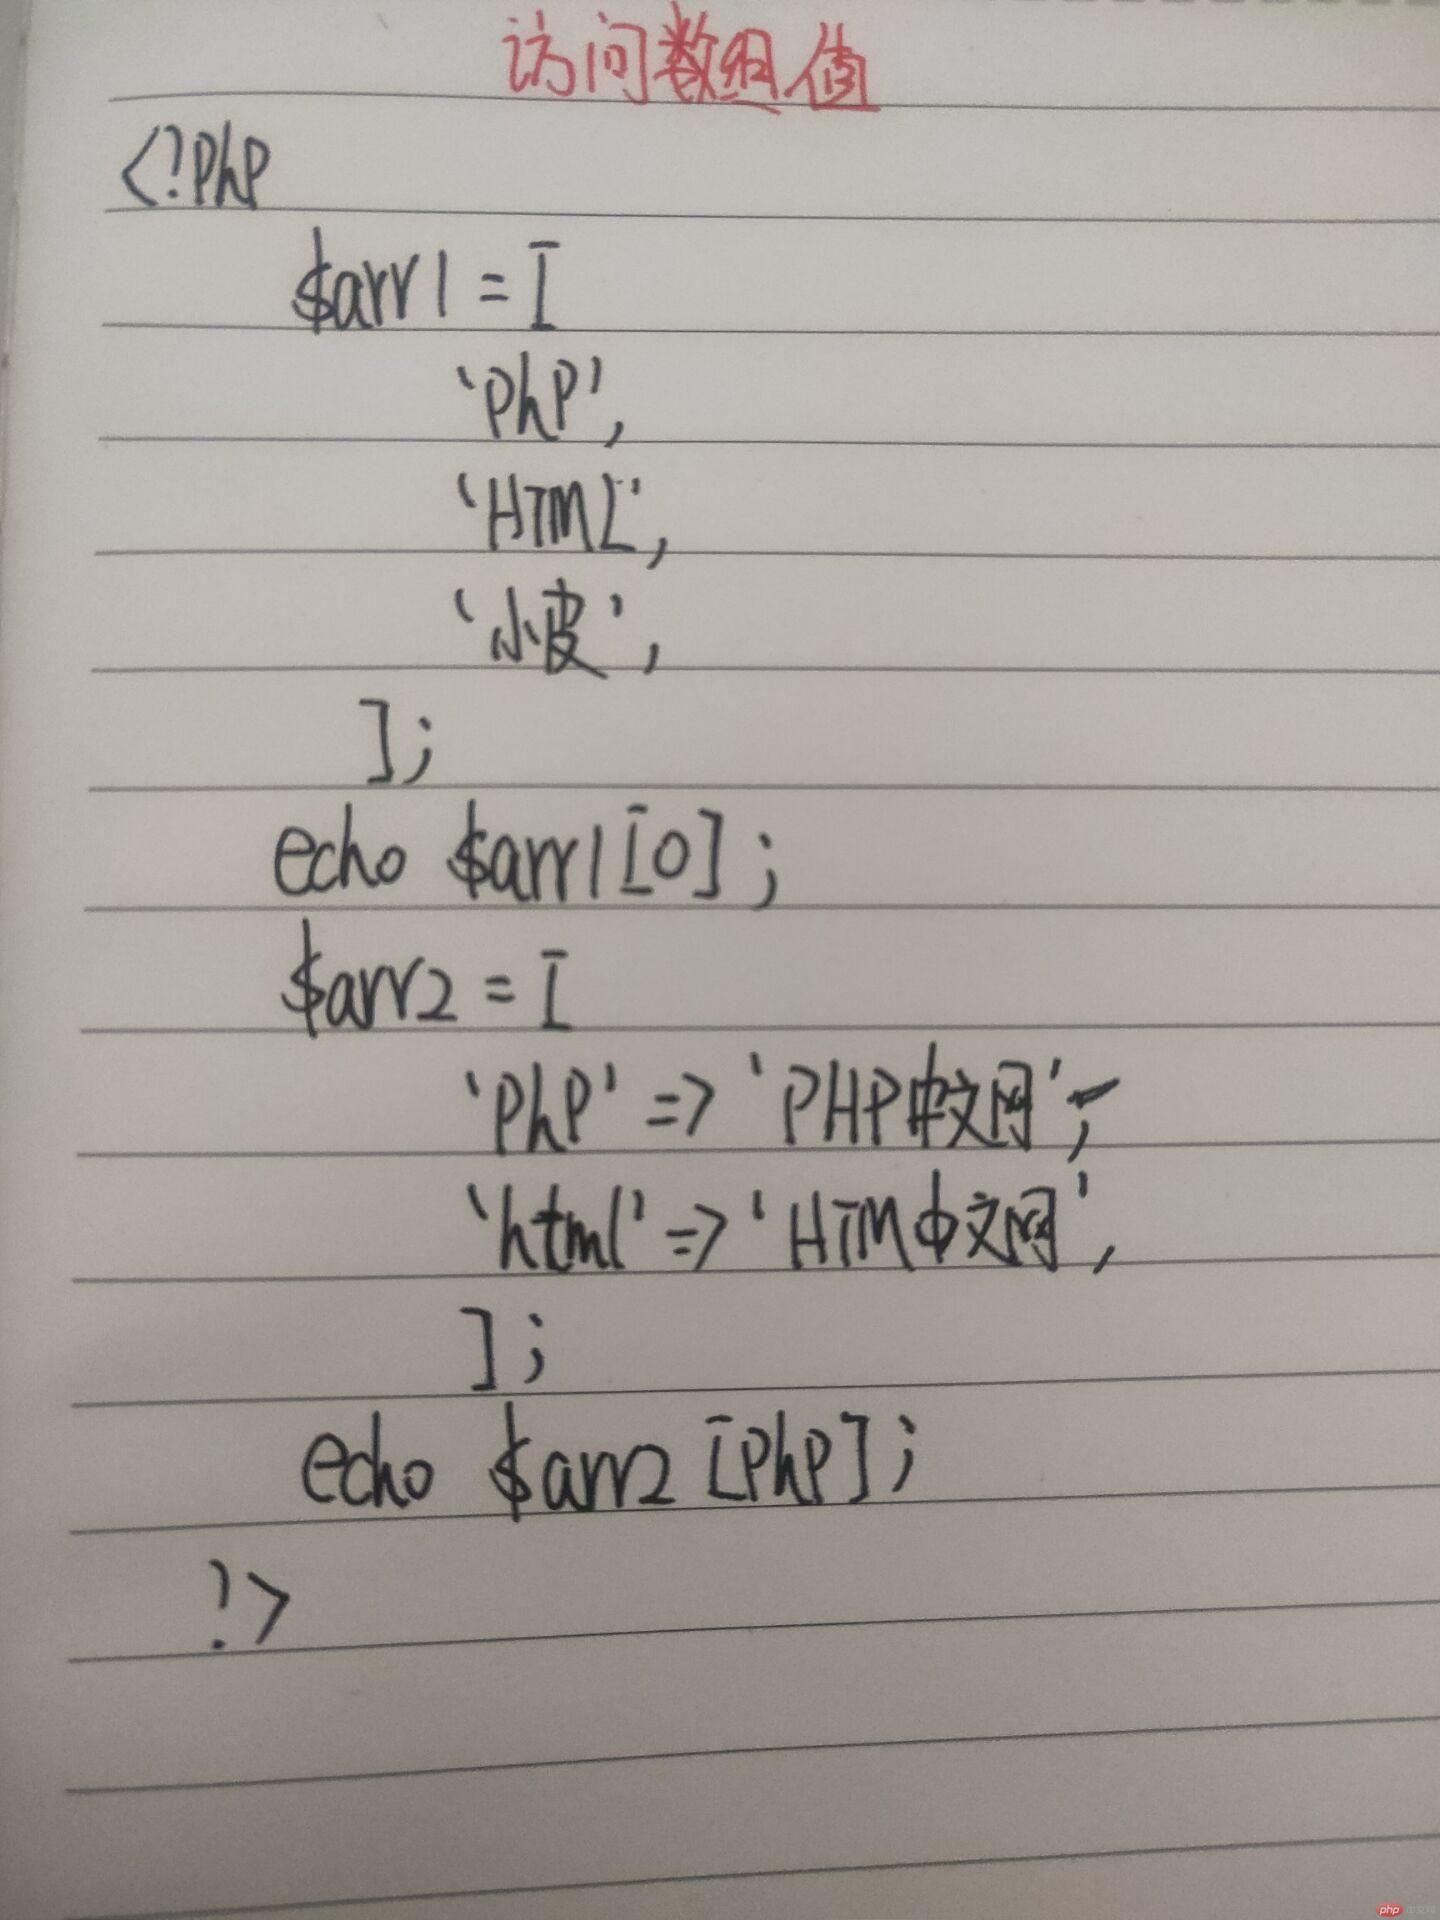 访问数组值
<?php
$arr1 = [
'php',
'HTML',
'小皮',
];
echo $arr1[0];
$arr2 = [
'php' => 'PHP中文网',
'html' => 'HTM中文网',
];
echo $arr2 [php];
?>
php 中文网